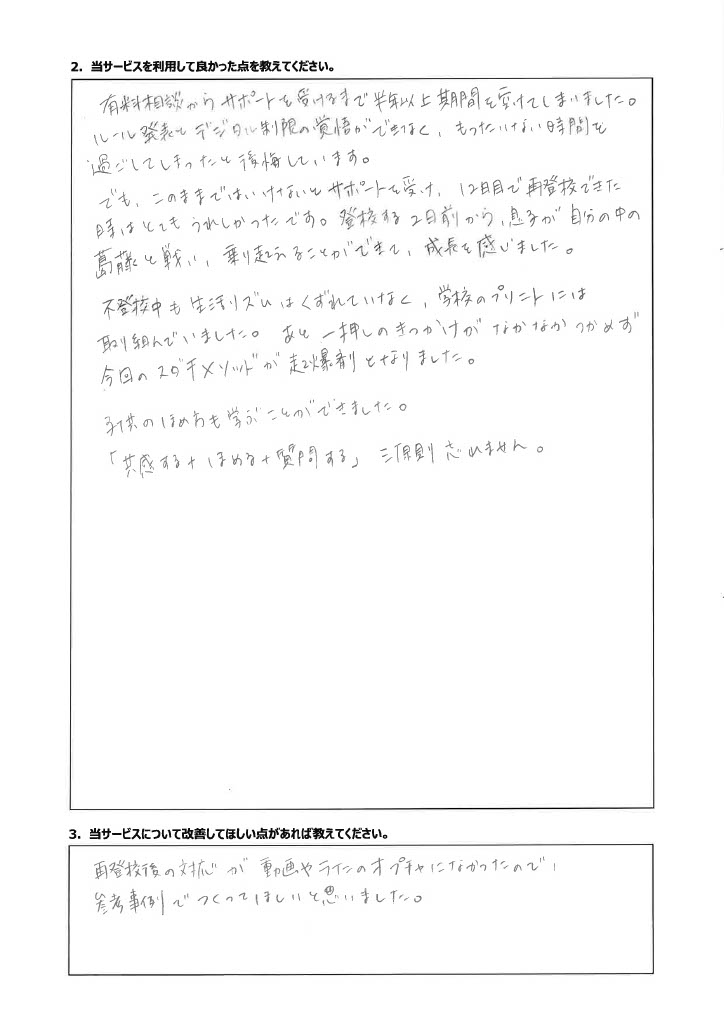 2. 当サービスを利用して良かった点を教えてください。
有料相談からサポートを受けるまで半年以上期間を空けてしまいました。
ルール発表とデジタル制限の覚悟ができなく、もったいない時間を
過ごしてしまったと後悔しています。
でも、このままではいけないとサポートを受け、12日目で再登校できた
時はとてもうれしかったです。登校する2日前から、息子が自分の中の
葛藤と戦い、乗り越えることができて、成長を感じました。
不登校中も生活リズムはくずれていなく、学校のプリントには
取り組んでいました。あと一押しのきっかけがなかなかつかめず
今回のスダチメソッドが起爆剤となりました。
子供のほめ方も学ぶことができました。
「共感する+ほめる+質問する」三原則忘れません。
3. 当サービスについて改善してほしい点があれば教えてください。
再登校後の対応が動画やラインのオプチャになかったので、
参考事例でつくってほしいと思いました。